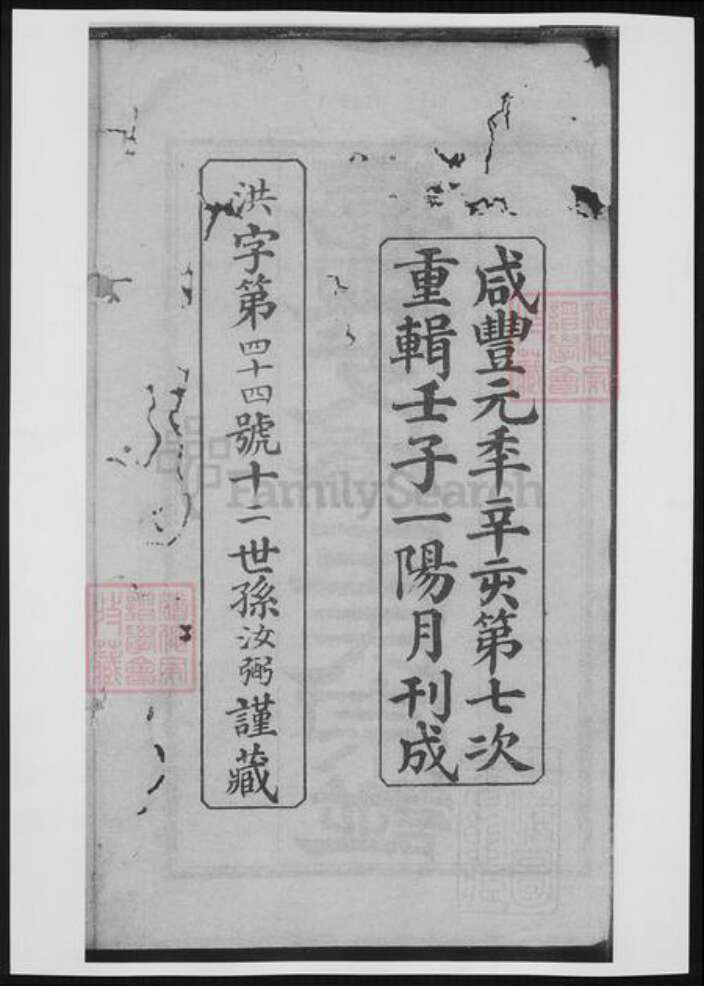 咸豐元秊辛亥第七次
重輯壬子一陽月刊成
洪字第四十四號十二世孫汝弼謹藏
FamilySearch
譜學會
譜學會